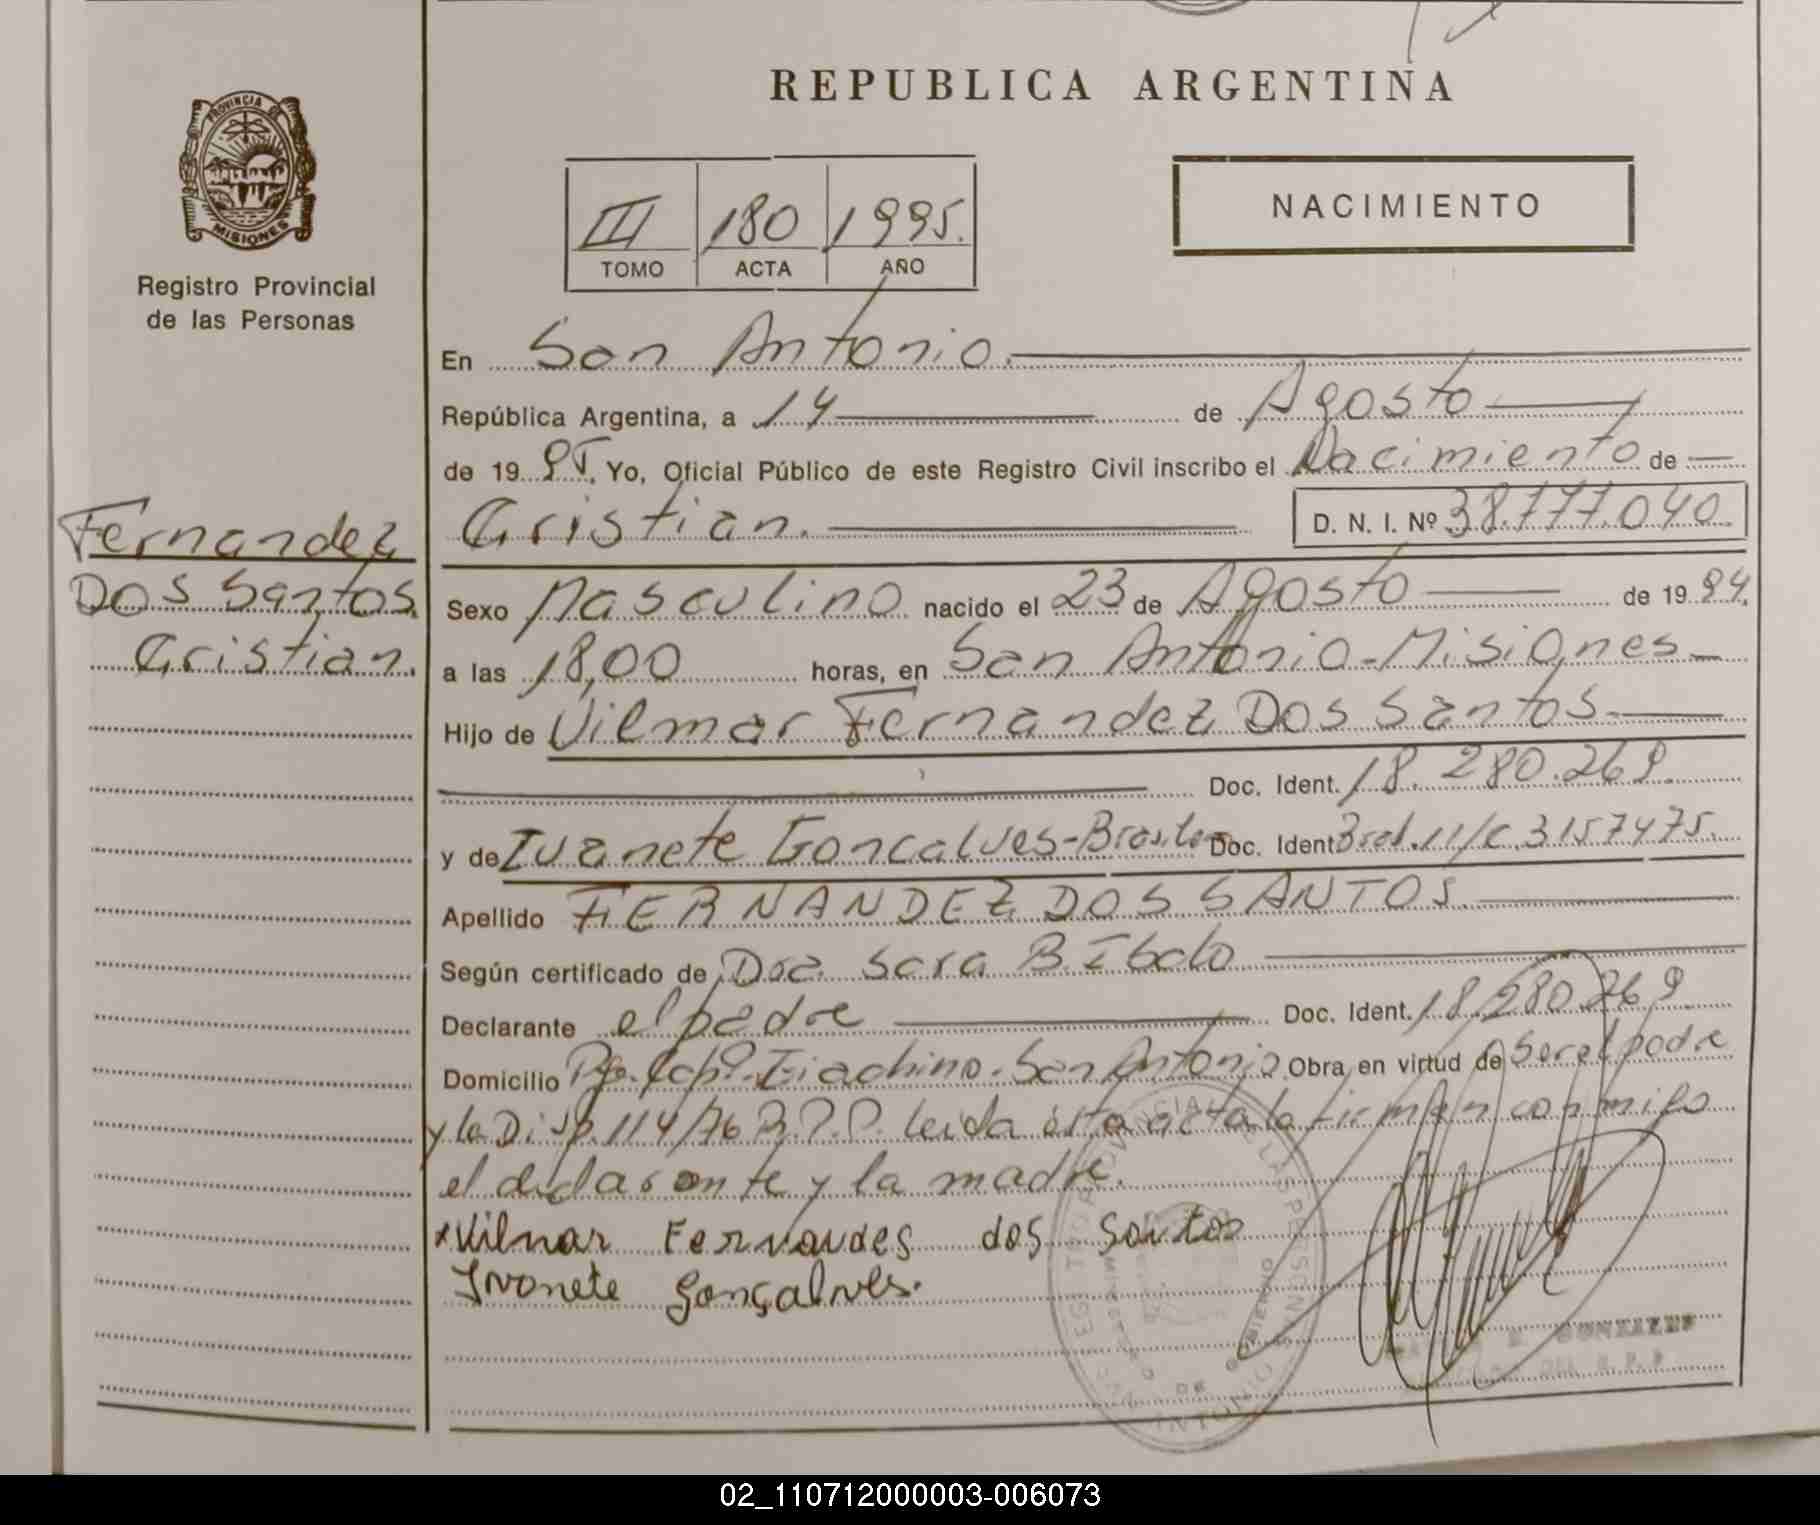 REPUBLICA ARGENTINA
PROVINCIA DE
MISIONES
Registro Provincial
de las Personas
III 180 1995.
TOMO ACTA AÑO
NACIMIENTO
En San Antonio.
República Argentina, a 14 de Agosto
de 19 95. Yo, Oficial Público de este Registro Civil inscribo el Nacimiento de
Cristian. D. N. I. Nº 38.777.040.
Fernandez
Dos Santos.
Cristian.
Sexo Masculino nacido el 23 de Agosto de 19 94.
a las 18,00 horas, en San Antonio-Misiones
Hijo de Vilmar Fernandez Dos Santos
Doc. Ident. 18.280.269.
y de Ivanete Goncalves- Doc. Ident 3157475.
Apellido FERNANDEZ DOS SANTOS.
Según certificado de Dra. Sara B.
Declarante el padre Doc. Ident. 18.280.269.
Domicilio San Antonio. Obra en virtud de Ser el padre
y la Disp. 114/76 R.P.P. leida esta acta la firman conmigo
el declarante y la madre.
Vilmar Fernandes dos Santos
Ivonete Gonçalves.
GONZALEZ
02_110712000003-006073